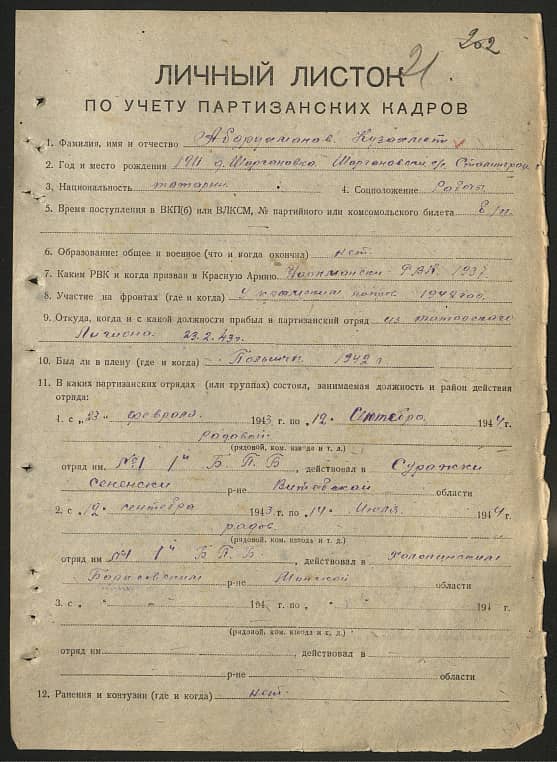 202
21
ЛИЧНЫЙ ЛИСТОК
ПО УЧЕТУ ПАРТИЗАНСКИХ КАДРОВ
1. Фамилия, имя и отчество Абдрахманов
2. Год и место рождения 1911 д. Шарлановка
3. Национальность татарин. 4. Соцположение Рабоч
5. Время поступления в ВКП(б) или ВЛКСМ, № партийного или комсомольского билета Б/п
6. Образование: общее и военное (что и когда окончил) нет.
7. Каким РВК и когда призван в Красную Армию. РВК 1937
8. Участие на фронтах (где и когда) 1942 год.
9. Откуда, когда и с какой должности прибыл в партизанский отряд из татарского
Легиона. 23.2.43 г.
10. Был ли в плену (где и когда) 1942 г.
11. В каких партизанских отрядах (или группах) состоял, занимаемая должность и район действия
отряда:
1. с „23" февраля. 1943 г. по „12" Сентебра 1944 г.
радовый
(рядовой, ком. взвода и т. д.)
отряд им. №1 1й Б.П.Б , действовал в Суражки
Сененски р-не Витебской области
2. с „12" сентебра 1943 г. по „14" Июля 1944 г.
радов.
(рядовой, ком. взвода и т. д.)
отряд им №1 1й Б П Б. , действовал в Холопинским
Борисовским р-не Минской области
3. с „ " 194 г. по „ " 194 г.
(рядовой, ком. взвода и т. д.)
отряд им , действовал в
р-не области
12. Ранения и контузии (где и когда) нет.